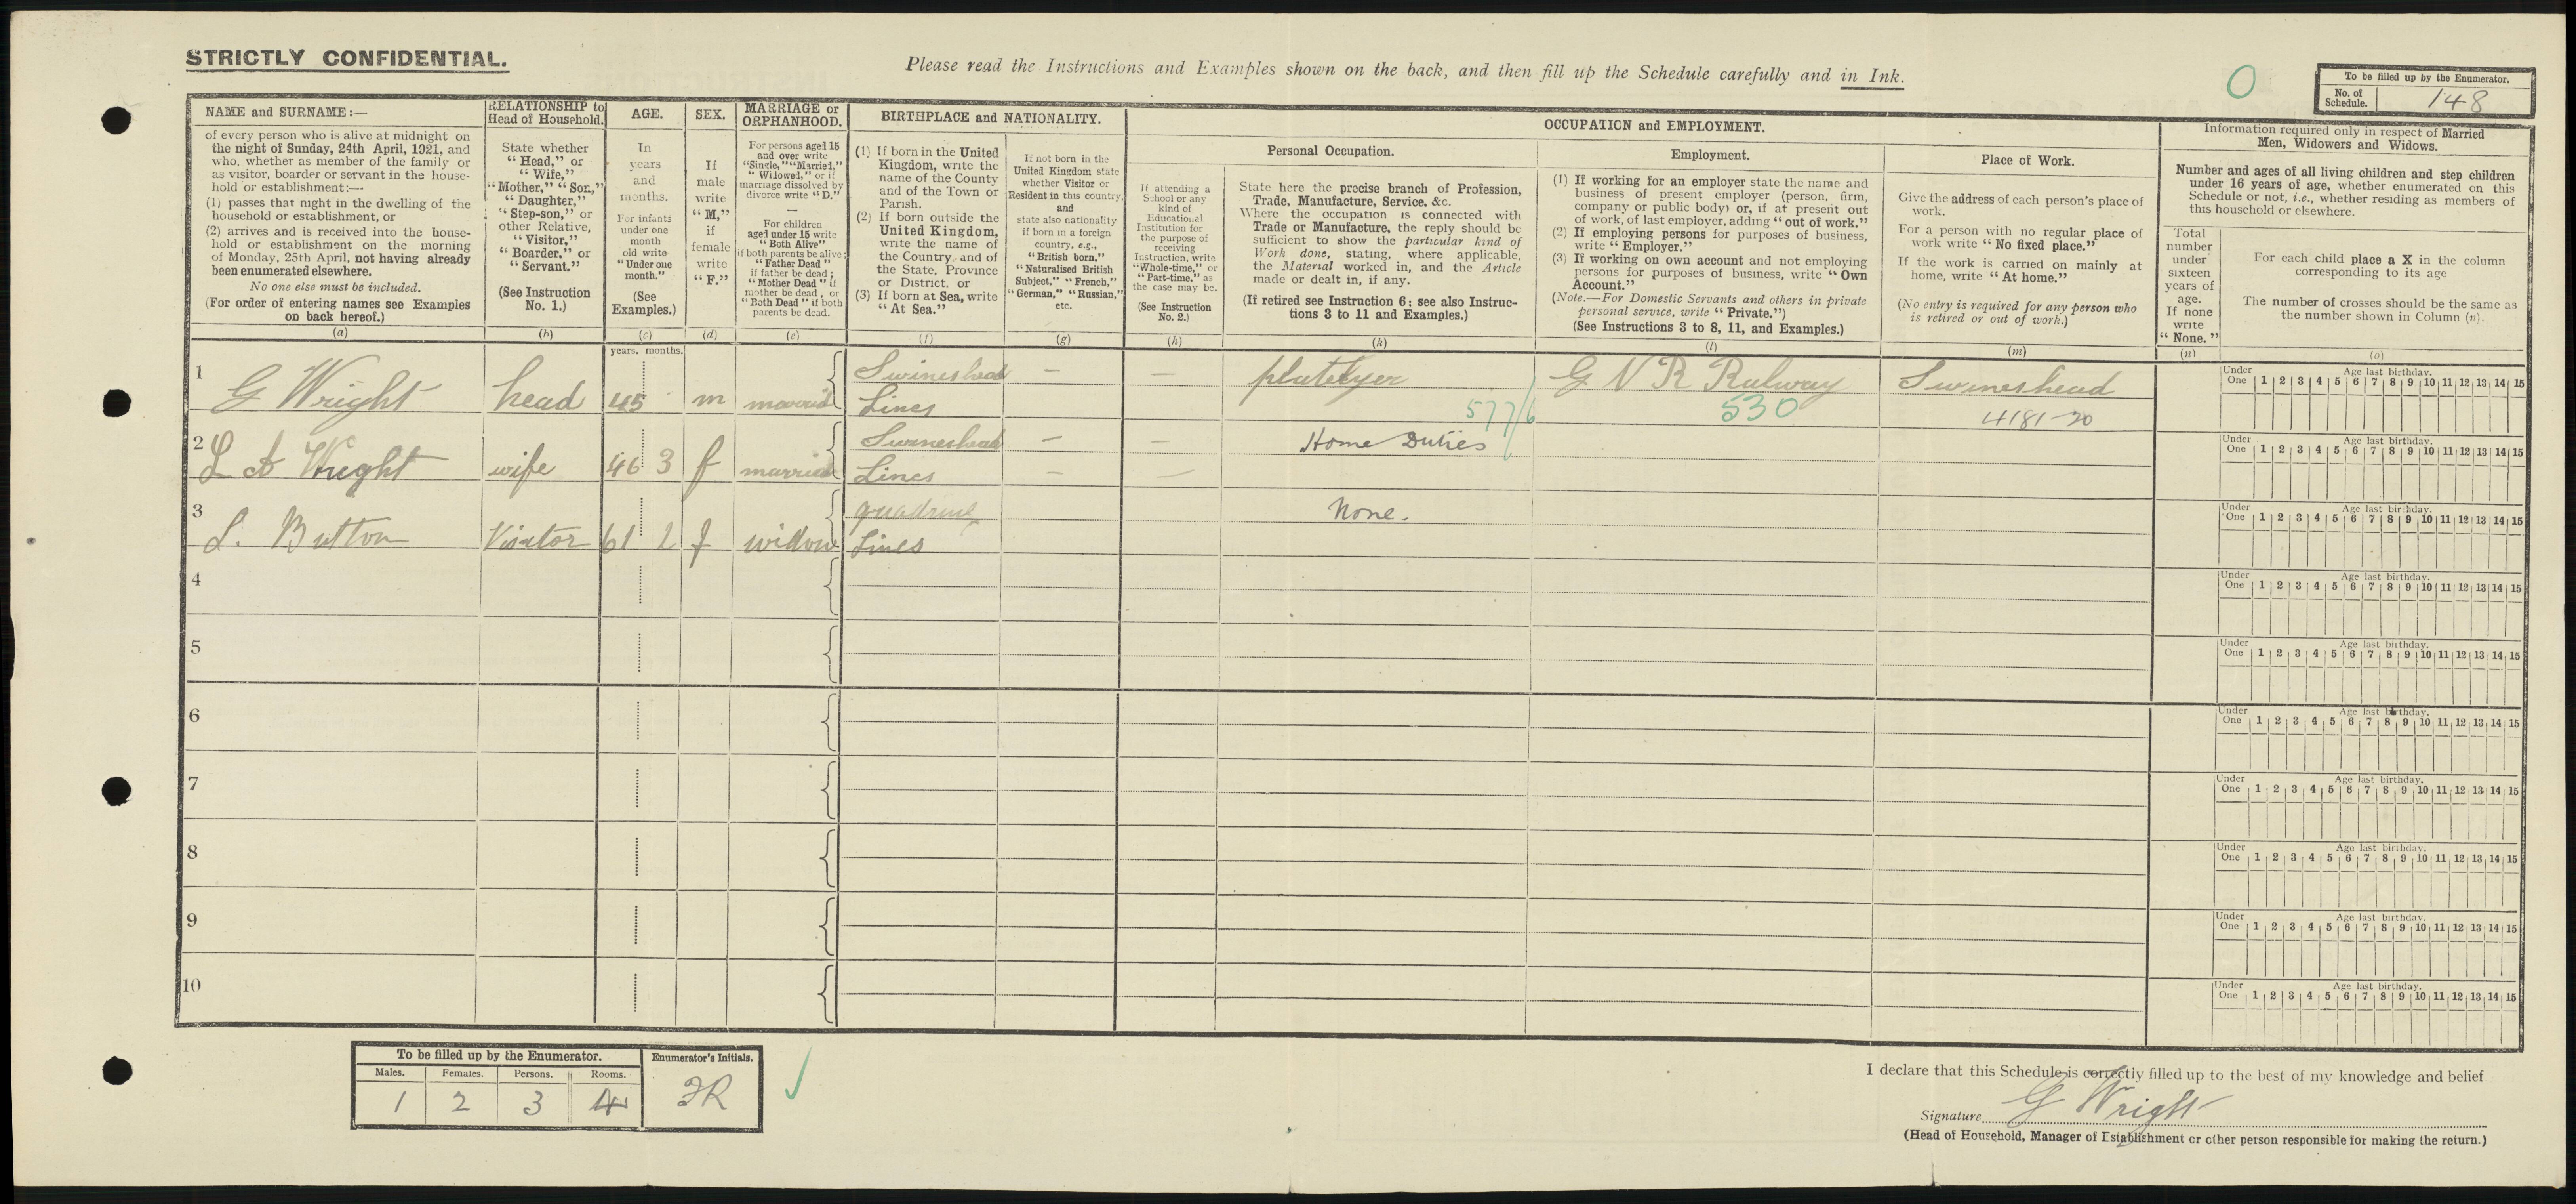 STRICTLY CONFIDENTIAL.
Please read the Instructions and Examples shown on the back, and then fill up the Schedule carefully and in Ink.
O
To be filled up by the Enumerator.
No. of Schedule. 148
NAME and SURNAME:—
of every person who is alive at midnight on
the night of Sunday, 24th April, 1921, and
who, whether as member of the family or
as visitor, boarder or servant in the house-
hold or establishment:—
(1) passes that night in the dwelling of the
household or establishment, or
(2) arrives and is received into the house-
hold or establishment on the morning
of Monday, 25th April, not having already
been enumerated elsewhere.
No one else must be included.
(For order of entering names see Examples
on back hereof.)
(a)
RELATIONSHIP to
Head of Household.
State whether
"Head," or
"Wife,"
"Mother," "Son,"
"Daughter,"
"Step-son," or
other Relative,
"Visitor,"
"Boarder," or
"Servant."
(See Instruction
No. 1.)
(b)
AGE.
In
years
and
months.
For infants
under one
month
old write
"Under one
month."
(See
Examples.)
(c)
SEX.
If
male
write
"M,"
if
female
write
"F."
(d)
MARRIAGE or
ORPHANHOOD.
For persons aged 15
and over write
"Single," "Married,"
"Widowed," or if
marriage dissolved by
divorce write "D."
—
For children
aged under 15 write
"Both Alive"
if both parents be alive;
"Father Dead"
if father be dead;
"Mother Dead" if
mother be dead, or
"Both Dead" if both
parents be dead.
(e)
BIRTHPLACE and NATIONALITY.
(1) If born in the United
Kingdom, write the
name of the County
and of the Town or
Parish.
(2) If born outside the
United Kingdom,
write the name of
the Country, and of
the State, Province
or District, or
(3) If born at Sea, write
"At Sea."
(f)
If not born in the
United Kingdom state
whether Visitor or
Resident in this country,
and
state also nationality
if born in a foreign
country, e.g.,
"British born,"
"Naturalised British
Subject," "French,"
"German," "Russian,"
etc.
(g)
OCCUPATION and EMPLOYMENT.
If attending a
School or any
kind of
Educational
Institution for
the purpose of
receiving
Instruction, write
"Whole-time," or
"Part-time," as
the case may be.
(See Instruction
No. 2.)
(h)
Personal Occupation.
State here the precise branch of Profession,
Trade, Manufacture, Service, &c.
Where the occupation is connected with
Trade or Manufacture, the reply should be
sufficient to show the particular kind of
Work done, stating, where applicable,
the Material worked in, and the Article
made or dealt in, if any.
(If retired see Instruction 6; see also Instruc-
tions 3 to 11 and Examples.)
(k)
Employment.
(1) If working for an employer state the name and
business of present employer (person, firm,
company or public body) or, if at present out
of work, of last employer, adding "out of work."
(2) If employing persons for purposes of business,
write "Employer."
(3) If working on own account and not employing
persons for purposes of business, write "Own
Account."
(Note.—For Domestic Servants and others in private
personal service, write "Private.")
(See Instructions 3 to 8, 11, and Examples.)
(l)
Place of Work.
Give the address of each person's place of
work.
For a person with no regular place of
work write "No fixed place."
If the work is carried on mainly at
home, write "At home."
(No entry is required for any person who
is retired or out of work.)
(m)
Information required only in respect of Married
Men, Widowers and Widows.
Number and ages of all living children and step children
under 16 years of age, whether enumerated on this
Schedule or not, i.e., whether residing as members of
this household or elsewhere.
Total
number
under
sixteen
years of
age.
If none
write
"None."
(n)
For each child place a X in the column
corresponding to its age
The number of crosses should be the same as
the number shown in Column (n).
(o)
years. months.
1 G Wright head 45 m married Swineshead Lincs — — platelyer G N R Railway Swineshead
577/6 530 4181-20
2 L A Wright wife 46 3 f married Swineshead Lincs — — Home Duties
3 L. Button Visitor 61 2 f widow Lincs None.
4
5
6
7
8
9
10
Under One 1 2 3 4 5 6 7 8 9 10 11 12 13 14 15
Age last birthday.
Under One 1 2 3 4 5 6 7 8 9 10 11 12 13 14 15
Age last birthday.
Under One 1 2 3 4 5 6 7 8 9 10 11 12 13 14 15
Age last birthday.
Under One 1 2 3 4 5 6 7 8 9 10 11 12 13 14 15
Age last birthday.
Under One 1 2 3 4 5 6 7 8 9 10 11 12 13 14 15
Age last birthday.
Under One 1 2 3 4 5 6 7 8 9 10 11 12 13 14 15
Age last birthday.
Under One 1 2 3 4 5 6 7 8 9 10 11 12 13 14 15
Age last birthday.
Under One 1 2 3 4 5 6 7 8 9 10 11 12 13 14 15
Age last birthday.
Under One 1 2 3 4 5 6 7 8 9 10 11 12 13 14 15
Age last birthday.
Under One 1 2 3 4 5 6 7 8 9 10 11 12 13 14 15
Age last birthday.
To be filled up by the Enumerator.
Males. Females. Persons. Rooms.
1 2 3 4
Enumerator's Initials.
FR
I declare that this Schedule is correctly filled up to the best of my knowledge and belief.
Signature G Wright
(Head of Household, Manager of Establishment or other person responsible for making the return.)